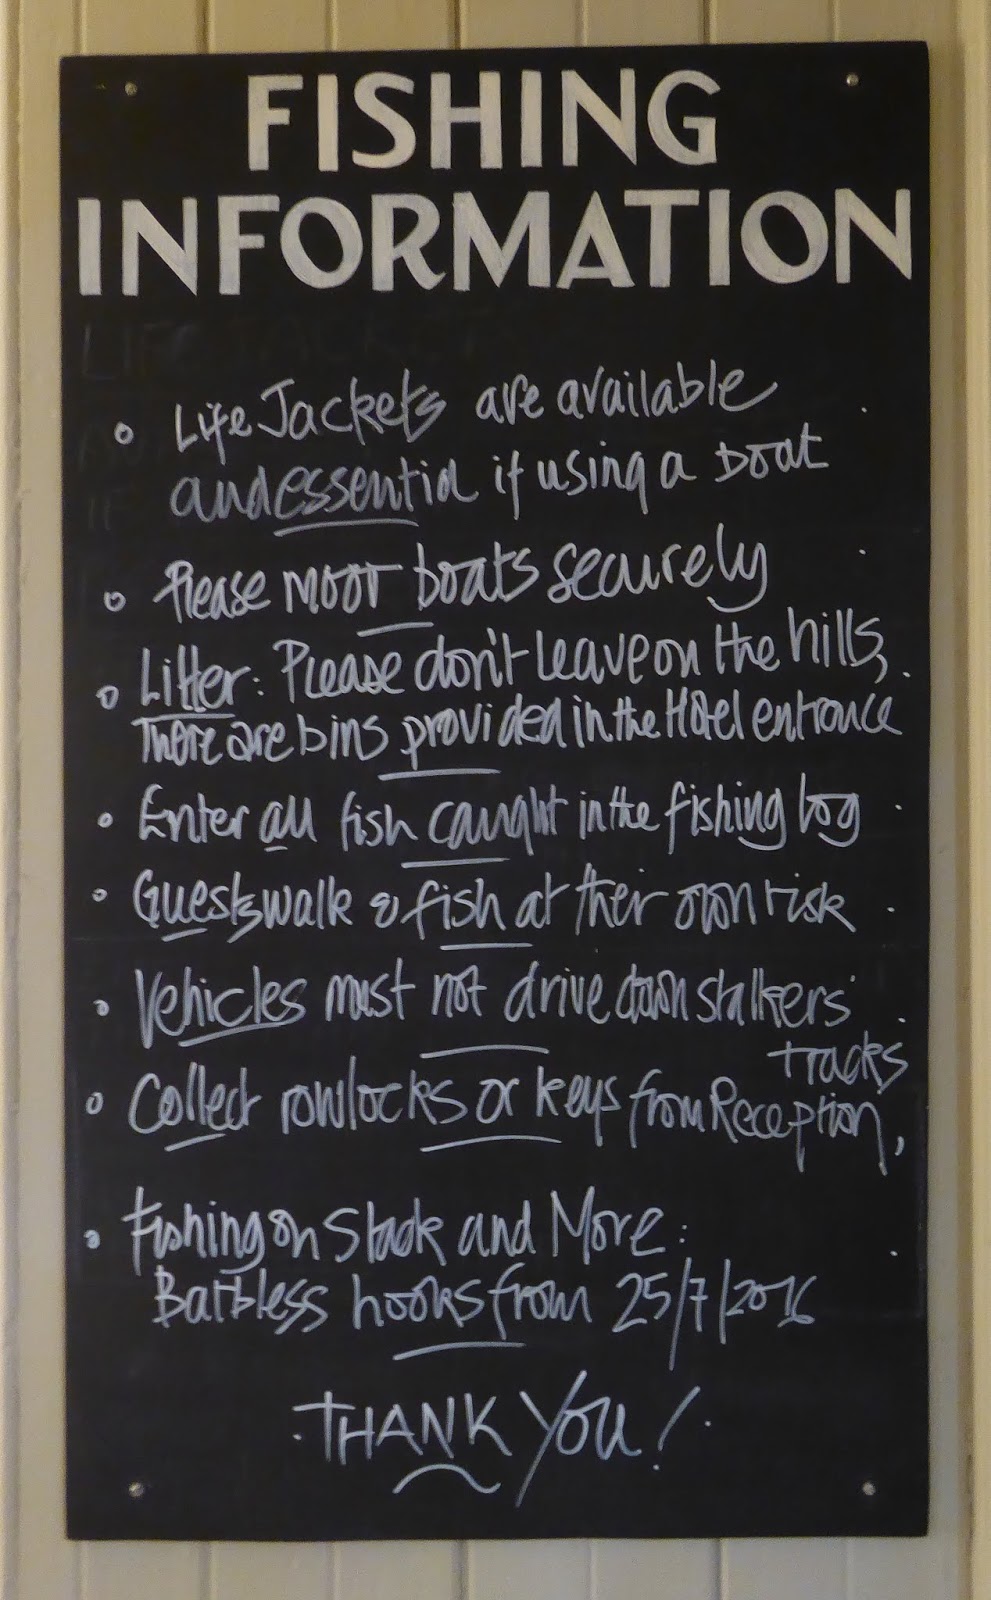 FISHING
INFORMATION
Life Jackets are available
and essential if using a boat
Please moor boats securely
Litter: Please don't leave on the hills,
There are bins provided in the Hotel entrance
Enter all fish caught in the fishing log
Guests walk & fish at their own risk
Vehicles must not drive down stalkers
tracks
Collect rowlocks or keys from Reception,
Fishing on Stack and More:
Barbless hooks from 25/7/2016
THANK YOU!